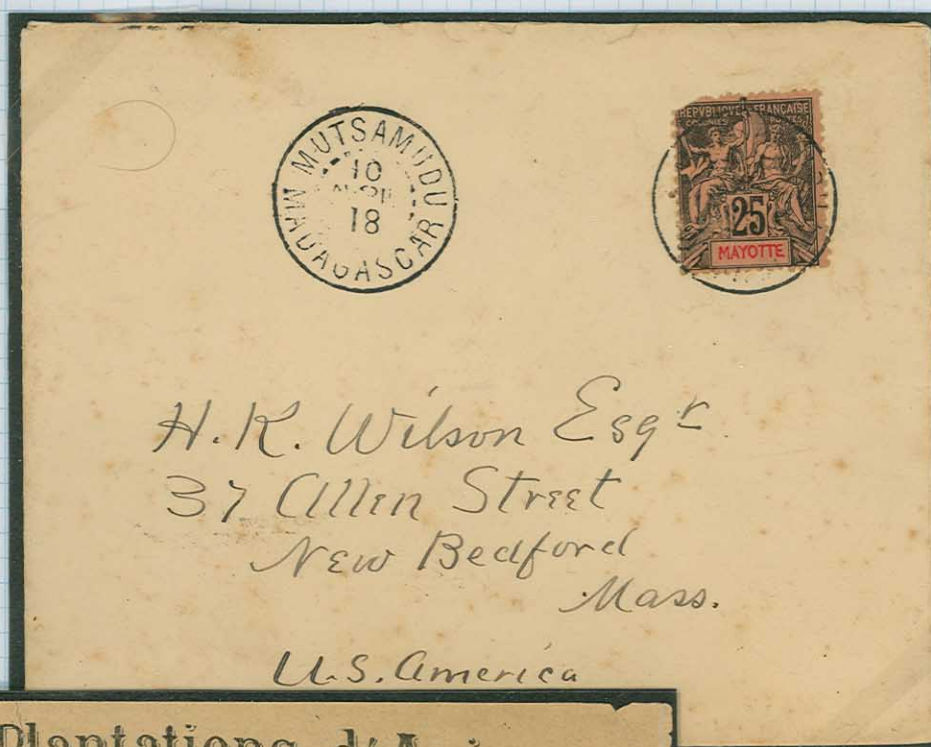 MUTSAMUDU
10
18
MADAGASCAR
REPVBLIQVE FRANÇAISE
COLONIES POSTES
25
MAYOTTE
H. K. Wilson Esqr
37 Allen Street
New Bedford
Mass.
U.S. America
Plantations